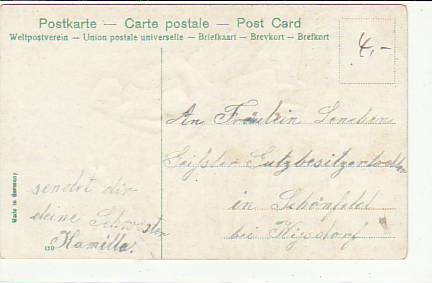 Postkarte — Carte postale — Post Card
Weltpostverein — Union postale universelle — Briefkaart — Brevkort — Brefkort
4,-
An Fräulein Lenchen
Geißler Gutzbesitzerstochter
in Schönfeld
bei
sendet dir
deine Schwester
Kamilla.
Made in Germany
150